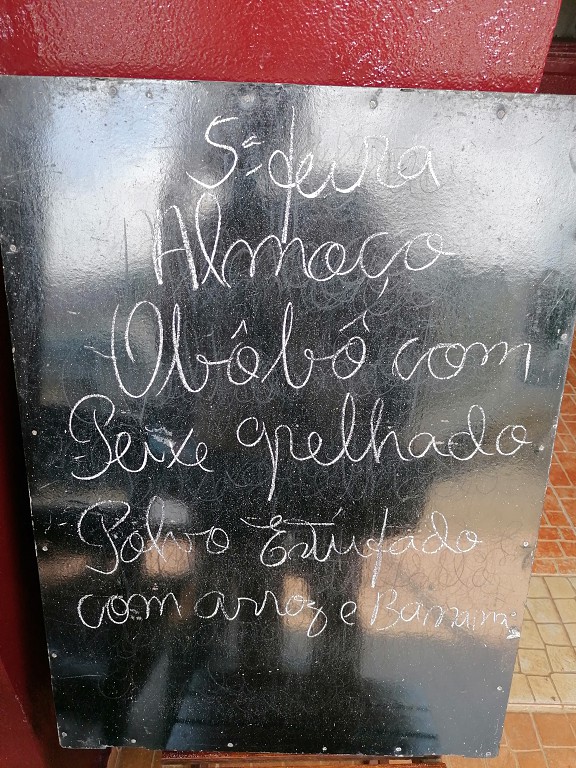 5ª feira
Almoço
Obôbô com
Peixe grelhado
Polvo Estufado
com arroz e Banana